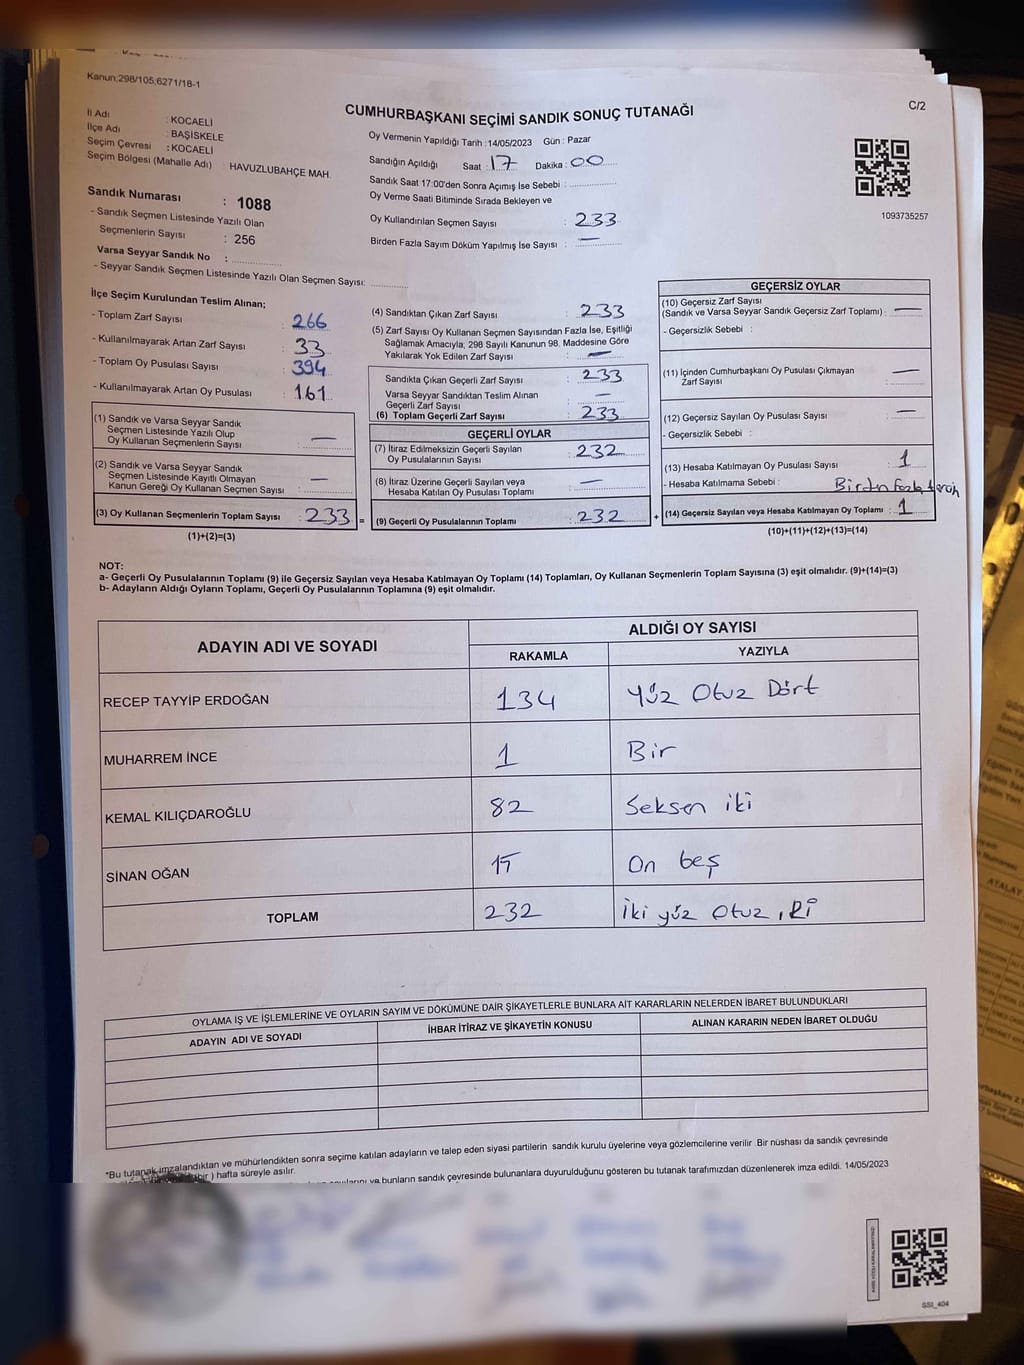 Kanun;298/105,6271/18-1
C/2
CUMHURBAŞKANI SEÇİMİ SANDIK SONUÇ TUTANAĞI
İl Adı : KOCAELİ
İlçe Adı : BAŞİSKELE
Seçim Çevresi : KOCAELİ
Seçim Bölgesi (Mahalle Adı) : HAVUZLUBAHÇE MAH.
Sandık Numarası : 1088
- Sandık Seçmen Listesinde Yazılı Olan
Seçmenlerin Sayısı : 256
Varsa Seyyar Sandık No :
- Seyyar Sandık Seçmen Listesinde Yazılı Olan Seçmen Sayısı:
Oy Vermenin Yapıldığı Tarih :14/05/2023 Gün : Pazar
Sandığın Açıldığı Saat : 17 Dakika : 00
Sandık Saat 17:00'den Sonra Açımış İse Sebebi :
Oy Verme Saati Bitiminde Sırada Bekleyen ve
Oy Kullandırılan Seçmen Sayısı : 233
Birden Fazla Sayım Döküm Yapılmış İse Sayısı : —
1093735257
İlçe Seçim Kurulundan Teslim Alınan;
- Toplam Zarf Sayısı : 266
- Kullanılmayarak Artan Zarf Sayısı : 33
- Toplam Oy Pusulası Sayısı : 394
- Kullanılmayarak Artan Oy Pusulası : 161
(1) Sandık ve Varsa Seyyar Sandık
Seçmen Listesinde Yazılı Olup
Oy Kullanan Seçmenlerin Sayısı : —
(2) Sandık ve Varsa Seyyar Sandık
Seçmen Listesinde Kayıtlı Olmayan
Kanun Gereği Oy Kullanan Seçmen Sayısı : —
(3) Oy Kullanan Seçmenlerin Toplam Sayısı : 233 =
(1)+(2)=(3)
(4) Sandıktan Çıkan Zarf Sayısı : 233
(5) Zarf Sayısı Oy Kullanan Seçmen Sayısından Fazla İse, Eşitliği
Sağlamak Amacıyla, 298 Sayılı Kanunun 98. Maddesine Göre
Yakılarak Yok Edilen Zarf Sayısı : —
Sandıkta Çıkan Geçerli Zarf Sayısı : 233
Varsa Seyyar Sandıktan Teslim Alınan
Geçerli Zarf Sayısı : —
(6) Toplam Geçerli Zarf Sayısı : 233
GEÇERLİ OYLAR
(7) İtiraz Edilmeksizin Geçerli Sayılan
Oy Pusulalarının Sayısı : 232
(8) İtiraz Üzerine Geçerli Sayılan veya
Hesaba Katılan Oy Pusulası Toplamı : —
(9) Geçerli Oy Pusulalarının Toplamı : 232 +
GEÇERSİZ OYLAR
(10) Geçersiz Zarf Sayısı
(Sandık ve Varsa Seyyar Sandık Geçersiz Zarf Toplamı) : —
- Geçersizlik Sebebi :
(11) İçinden Cumhurbaşkanı Oy Pusulası Çıkmayan
Zarf Sayısı : —
(12) Geçersiz Sayılan Oy Pusulası Sayısı : —
- Geçersizlik Sebebi :
(13) Hesaba Katılmayan Oy Pusulası Sayısı : 1
- Hesaba Katılmama Sebebi : Birden Fazla tercih
(14) Geçersiz Sayılan veya Hesaba Katılmayan Oy Toplamı : 1
(10)+(11)+(12)+(13)=(14)
NOT:
a- Geçerli Oy Pusulalarının Toplamı (9) ile Geçersiz Sayılan veya Hesaba Katılmayan Oy Toplamı (14) Toplamları, Oy Kullanan Seçmenlerin Toplam Sayısına (3) eşit olmalıdır. (9)+(14)=(3)
b- Adayların Aldığı Oyların Toplamı, Geçerli Oy Pusulalarının Toplamına (9) eşit olmalıdır.
ADAYIN ADI VE SOYADI
ALDIĞI OY SAYISI
RAKAMLA YAZIYLA
RECEP TAYYİP ERDOĞAN 134 Yüz Otuz Dört
MUHARREM İNCE 1 Bir
KEMAL KILIÇDAROĞLU 82 Seksen iki
SİNAN OĞAN 15 On beş
TOPLAM 232 İki yüz Otuz iki
OYLAMA İŞ VE İŞLEMLERİNE VE OYLARIN SAYIM VE DÖKÜMÜNE DAİR ŞİKAYETLERLE BUNLARA AİT KARARLARIN NELERDEN İBARET BULUNDUKLARI
ADAYIN ADI VE SOYADI İHBAR İTİRAZ VE ŞİKAYETİN KONUSU ALINAN KARARIN NEDEN İBARET OLDUĞU
*Bu tutanak imzalandıktan ve mühürlendikten sonra seçime katılan adayların ve talep eden siyasi partilerin sandık kurulu üyelerine veya gözlemcilerine verilir Bir nüshası da sandık çevresinde
bir ) hafta süreyle asılır.
ve bunların sandık çevresinde bulunanlara duyurulduğunu gösteren bu tutanak tarafımızdan düzenlenerek imza edildi. 14/05/2023
SSI_404
ATALAY